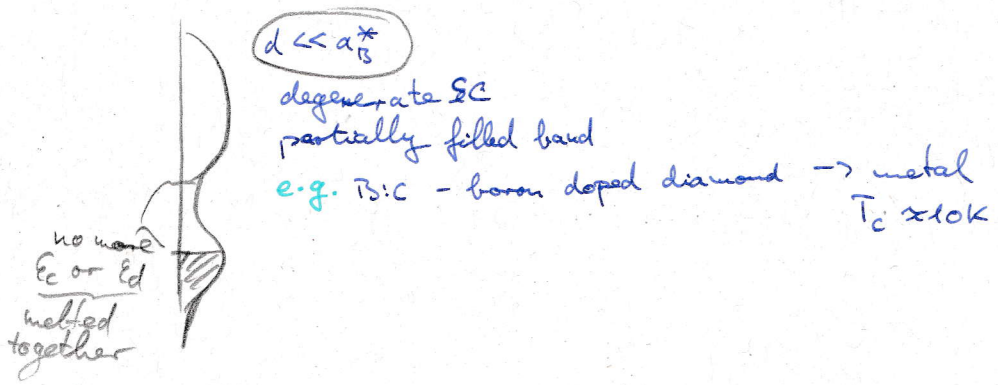 d << a*B
degenerate SC
partially filled band
e.g. B:C - boron doped diamond -> metal
Tc ≈ 10K
no more
Ec or Ed
melted
together